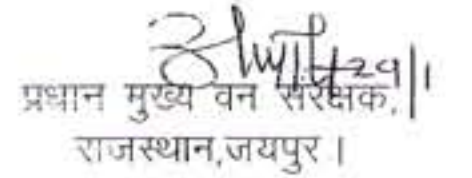 29/1
प्रधान मुख्य वन संरक्षक,
राजस्थान,जयपुर ।